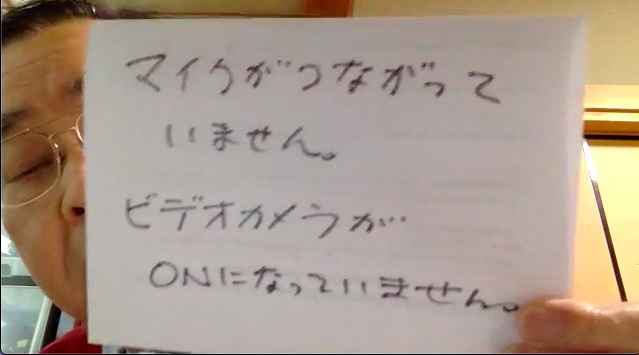 マイクがつながって
いません。
ビデオカメラが
ONになっていません。